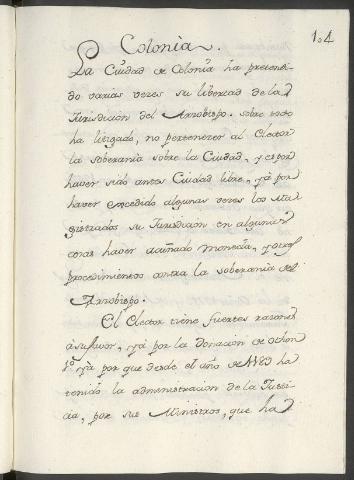 104
Colonia.
La Ciudad de Colonia ha pretendi-
do varias veces su libertad de la
Jurisdicion del Arzobispo. Sobre todo
ha litigado, no pertenecer al Elector
la soberanía sobre la Ciudad, ya por
haver sido antes Ciudad libre, ya por
haver excedido algunas veces los Ma-
gistrados su Jurisdicion en algunas
cosas haver acuñado moneda, y otros
procedimientos contra la soberania del
Arzobispo.
El Elector tiene fuertes razones
à su favor, ya por la Donacion de Othon
1º ya por que desde el año de 1180 ha
tenido la administracion de la Justi-
cia, por sus Ministros, que ha